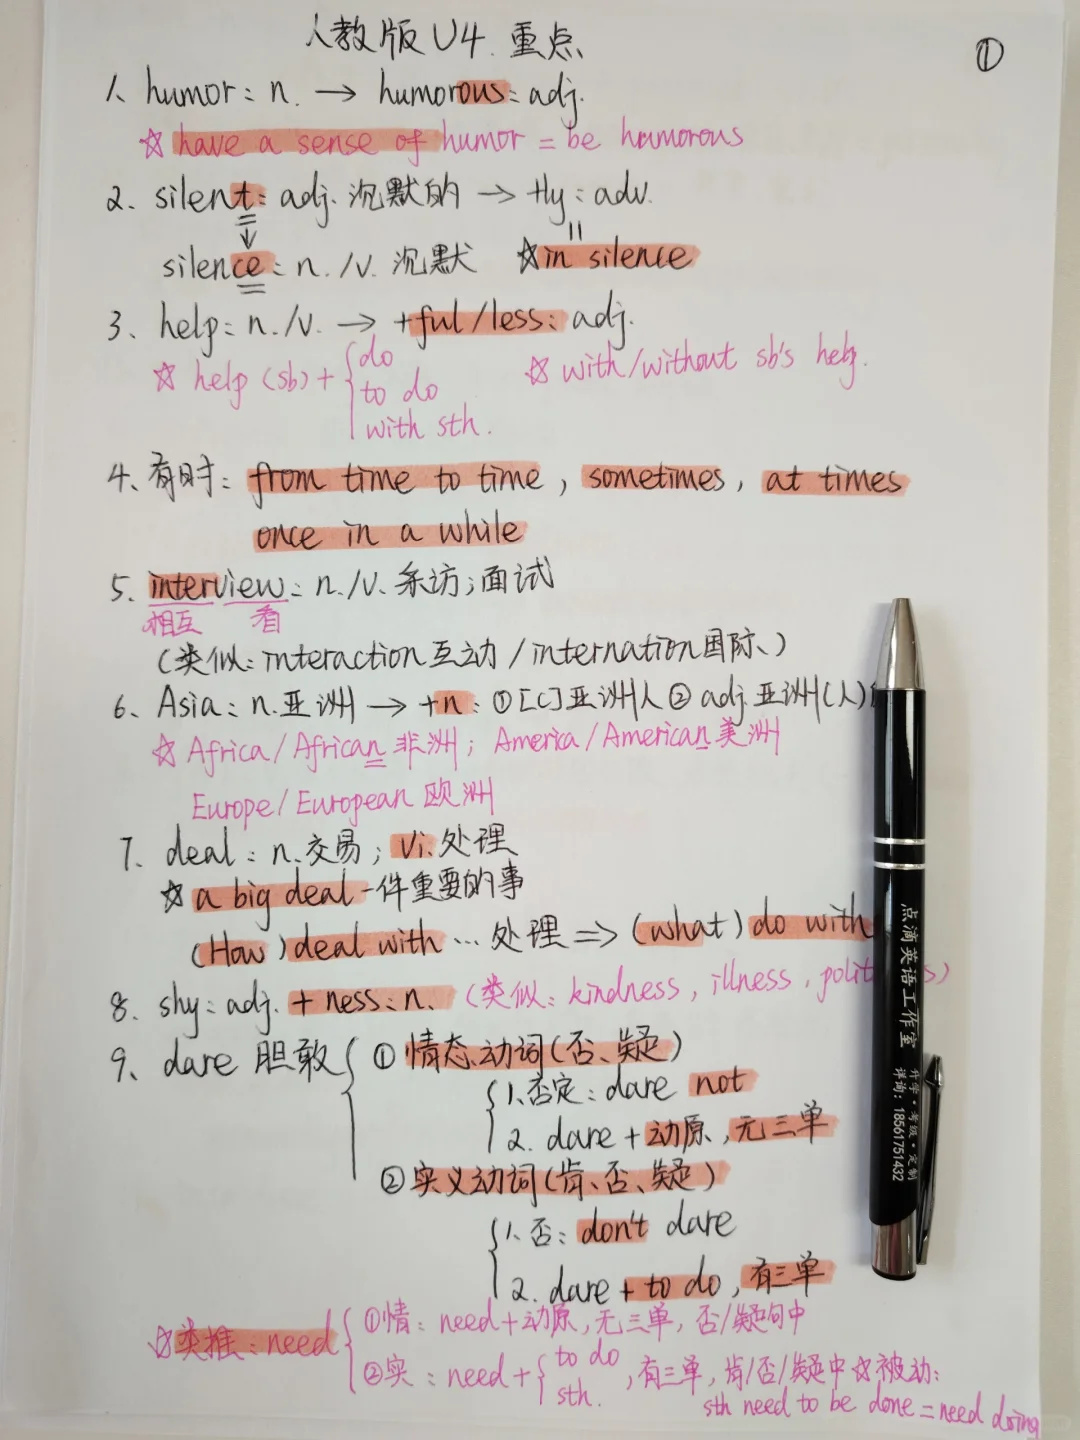 人教版U4.重点
①
1、humor: n. → humorous: adj.
☆have a sense of humor = be humorous
2、silent: adj. 沉默的 → +ly: adv.
silence: n./v. 沉默 ☆in silence
3、help: n./v. → +ful/less: adj.
☆ help (sb) + { do
to do
with sth.
☆ with/without sb's help.
4、有时: from time to time, sometimes, at times
once in a while
5、interview: n./v. 采访;面试
相互 看
(类似: interaction互动/internation国际、)
6、Asia: n.亚洲 → +n: ①[C]亚洲人 ② adj.亚洲(人)
☆ Africa/African 非洲; America/American美洲
Europe/European 欧洲
7、deal: n.交易; vi.处理
☆ a big deal 一件重要的事
(How)deal with … 处理 ⇒ (what) do with
8、shy: adj. + ness: n. (类似: kindness, illness, polit s)
9、dare 胆敢 { ① 情态动词(否、疑)
{ 1、否定: dare not
2. dare + 动原, 无三单
② 实义动词(肯、否、疑)
{ 1、否: don't dare
2. dare + to do, 有三单
☆类推: need { ①情: need+动原, 无三单, 否/疑问中
②实: need+ { to do
sth.
, 有三单, 肯/否/疑中 ☆被动:
sth need to be done = need doing
点滴英语工作室
升学·考级·定制
详询: 18561751432